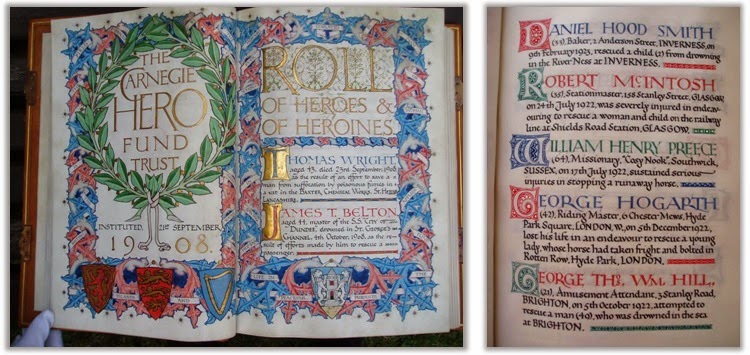 THE
CARNEGIE
HERO
FUND
TRUST
INSTITUTED, 21ST SEPTEMBER
1908
ROLL
OF HEROES &
OF HEROINES
THOMAS WRIGHT,
aged 43, died 23rd September, 1908,
as the result of an effort to save a
man from suffocation by poisonous fumes in
a vat in the BAXTER CHEMICAL WORKS, ST. HELENS,
LANCASHIRE.
JAMES T. BELTON,
aged 44, master of the S.S. "CITY OF
DUNDEE," drowned in ST. GEORGE'S
CHANNEL, 4th October, 1908, as the re-
sult of efforts made by him to rescue a
passenger.
DANIEL HOOD SMITH
Baker, 2 Anderson Street, INVERNESS, on
9th February 1923, rescued a child (2) from drowning
in the River Ness at INVERNESS.
ROBERT McINTOSH
(55), Stationmaster, 158 Stanley Street, GLASGOW,
on 24th July 1922, was severely injured in endeav-
ouring to rescue a woman and child on the railway
line at Shields Road Station, GLASGOW.
WILLIAM HENRY PREECE
(64), Missionary, "Cosy Nook", Southwick,
SUSSEX, on 17th July 1922, sustained serious
injuries in stopping a runaway horse.
GEORGE HOGARTH
(42), Riding Master, 6 Chester Mews, Hyde
Park Square, LONDON, W., on 5th December 1922,
lost his life in an endeavour to rescue a young
lady, whose horse had taken fright and bolted in
Rotten Row, Hyde Park, LONDON.
GEORGE THOS. WM. HILL,
(21), Amusement Attendant, 3 Stanley Road,
BRIGHTON, on 5th October 1922, attempted to
rescue a man (49), who was drowned in the sea
at BRIGHTON.